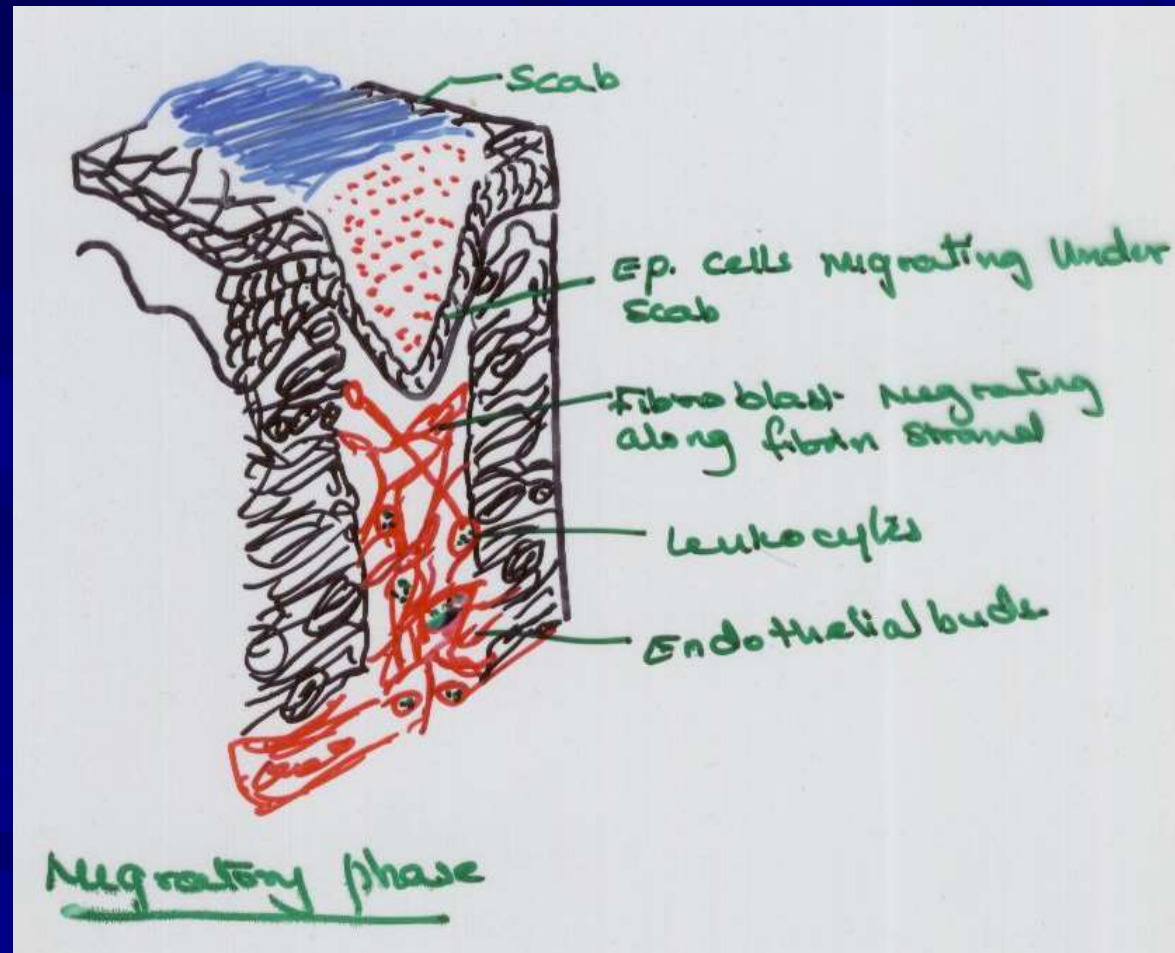 Scab
Ep. cells migrating Under
scab
Fibroblast migrating
along fibrin strand
Leukocytes
Endothelial buds
Migratory phase